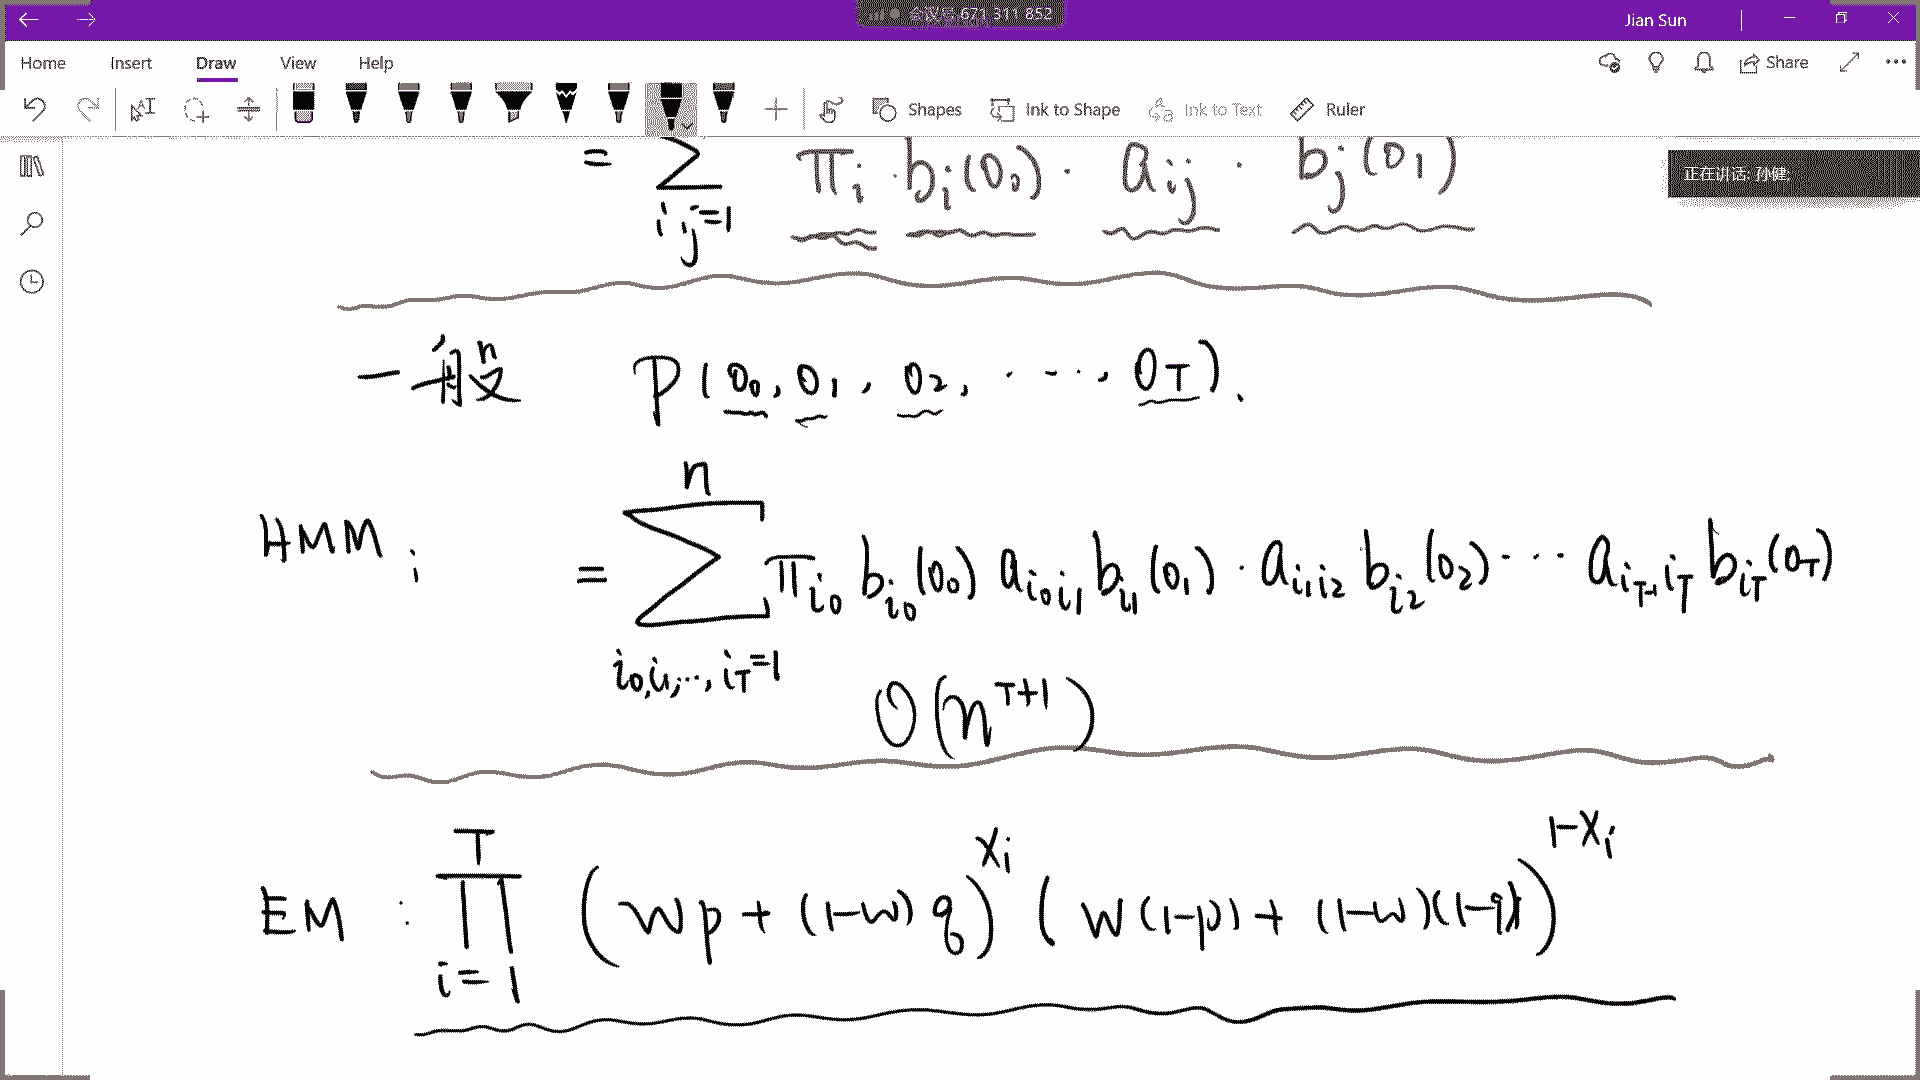 会议号 671 311 852
Jian Sun
Home Insert Draw View Help
Share
Shapes Ink to Shape Ink to Text Ruler
正在讲话: 孙健;
= ∑_{i,j=1}^{n} π_i · b_i(o_0) · a_{ij} · b_j(o_1)
一般 P(o_0, o_1, o_2, ⋯, o_T).
HMM: = ∑_{i_0,i_1,⋯,i_T=1}^{n} π_{i_0} b_{i_0}(o_0) a_{i_0i_1} b_{i_1}(o_1) · a_{i_1i_2} b_{i_2}(o_2) ⋯ a_{i_{T-1}i_T} b_{i_T}(o_T)
O(n^{T+1})
EM: ∏_{i=1}^{T} (wp + (1-w)q)^{x_i} (w(1-p) + (1-w)(1-q))^{1-x_i}